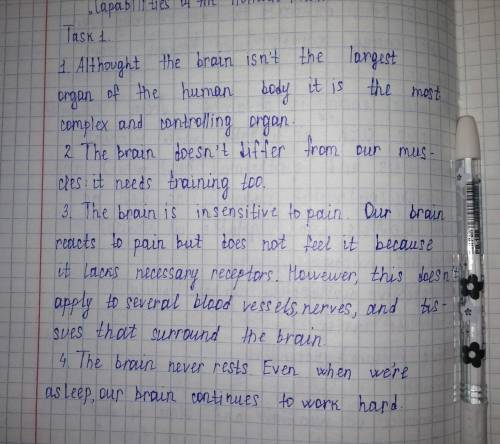 „Capabilities of the Human
Task 1.
1. Althought the brain isn't the largest
organ of the human body it is the most
complex and controlling organ.
2 The brain doesn't differ from our mus-
cles: it needs training too.
3. The brain is insensitive to pain. Our brain
reacts to pain but does not feel it because
it lacks necessary receptors. However, this doesn't
apply to several blood vessels, nerves, and tis-
sues that surround the brain.
4. The brain never rests Even when we're
asleep, our brain continues to work hard.